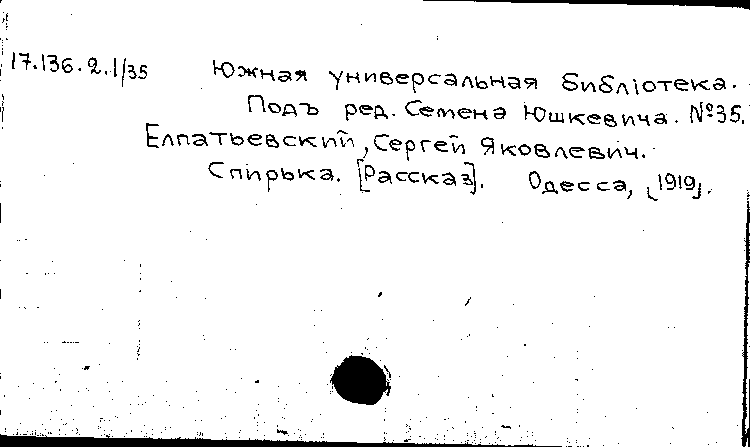 17.136.2.1/35 Южная универсальная библiотека.
Подъ ред. Семена Юшкевича. №35.
Елпатьевский, Сергей Яковлевич.
Спирька. [Рассказ]. Одесса, [1919].